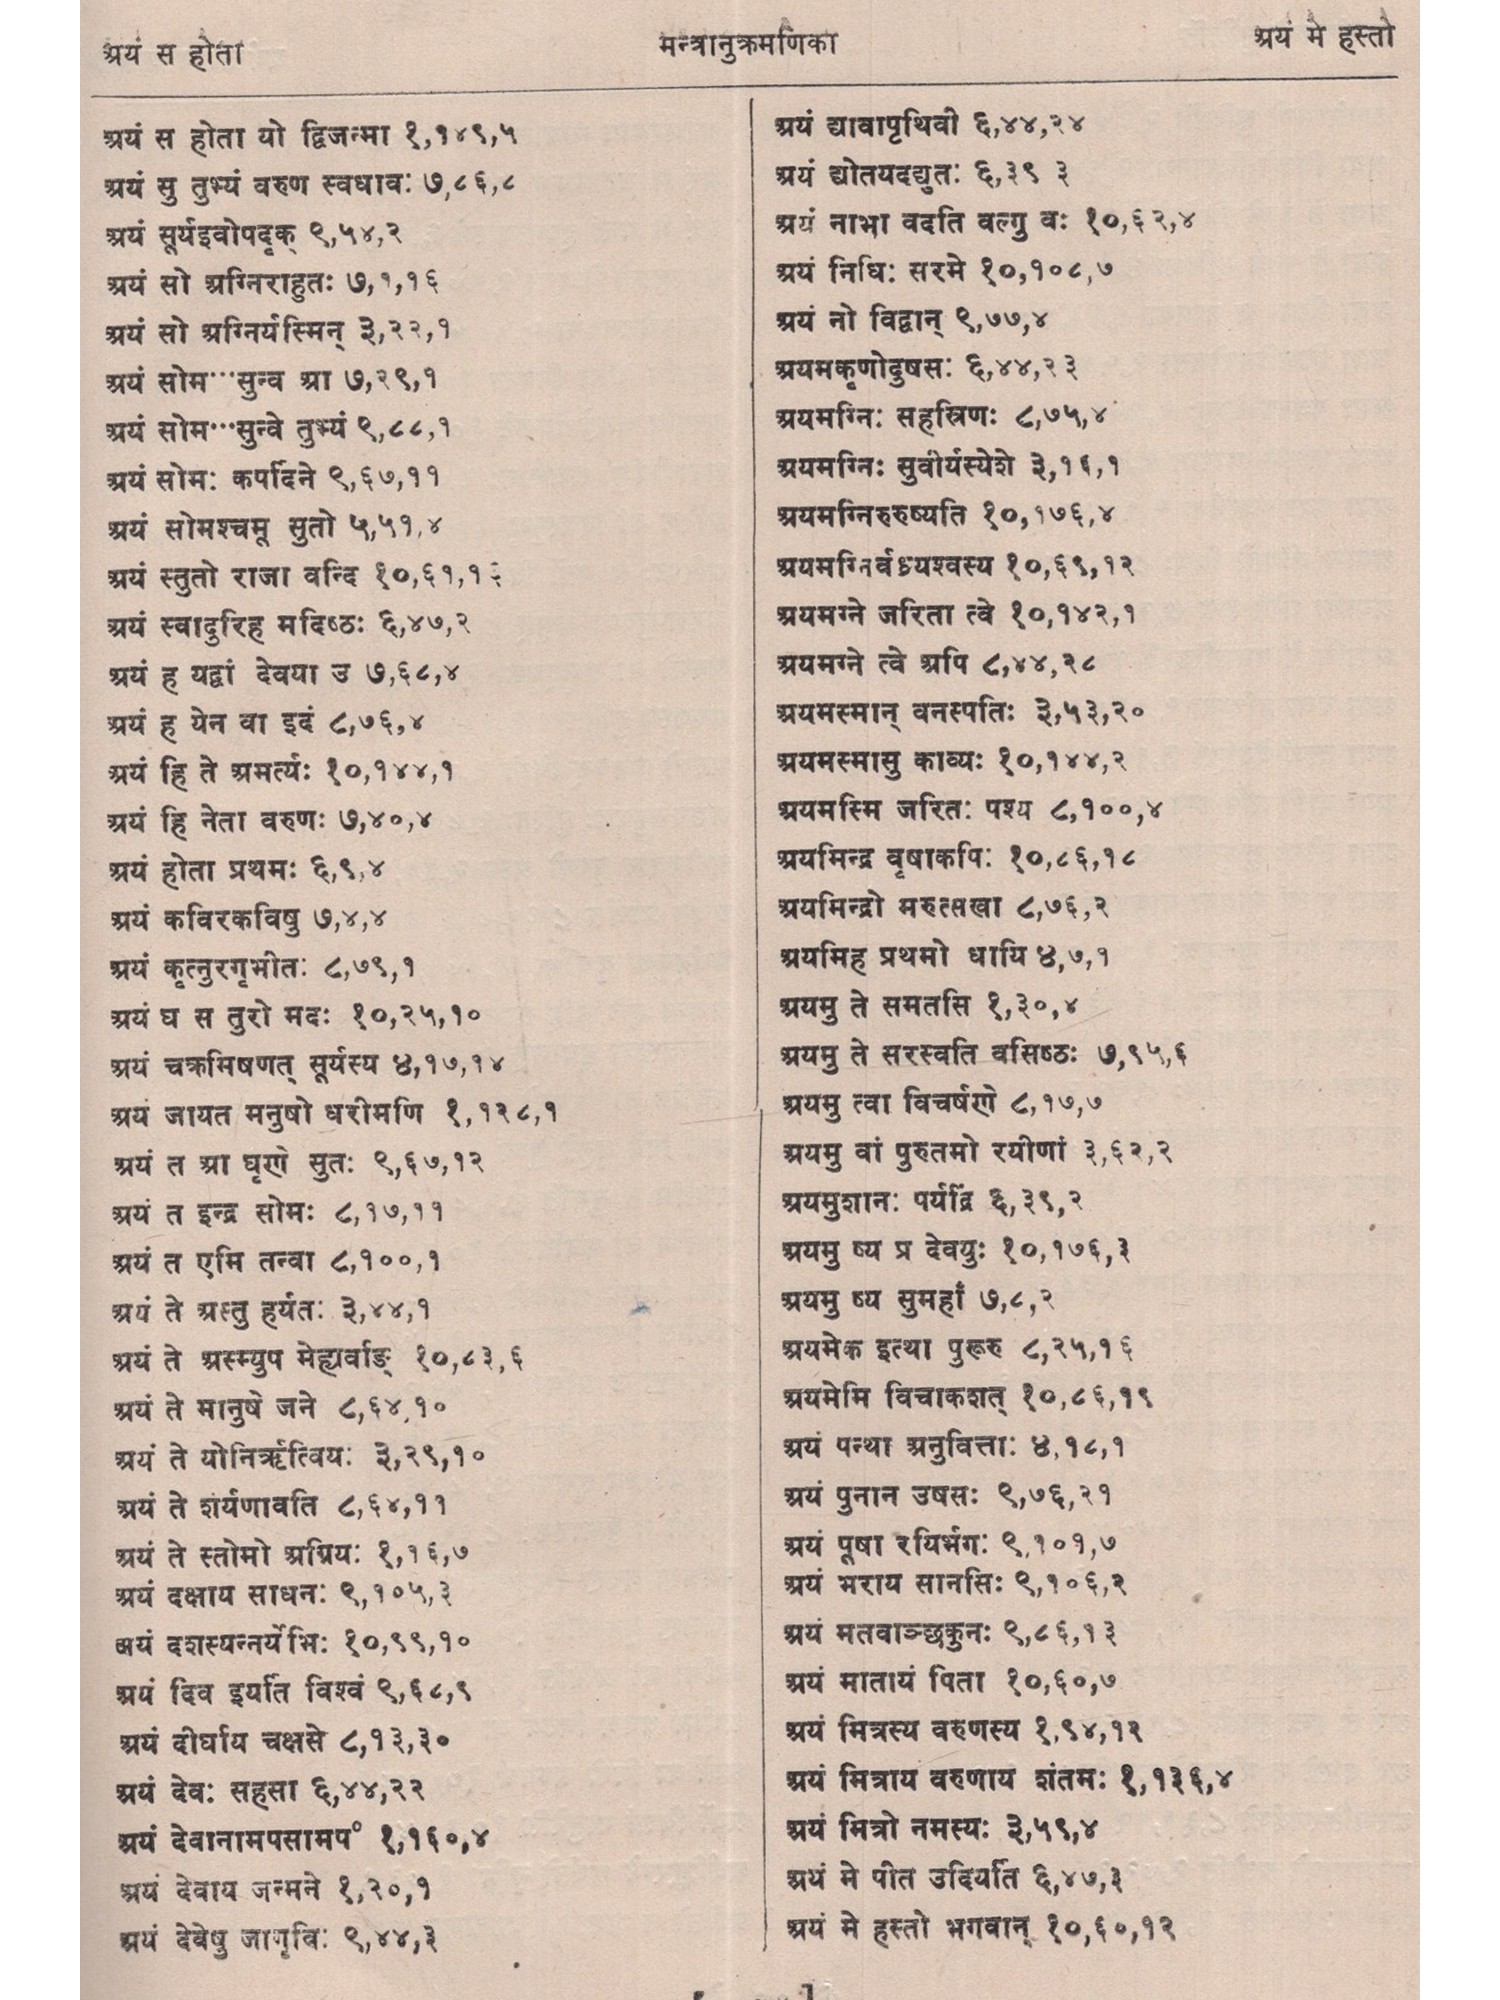 अयं स होता
मन्त्रानुक्रमणिका
अयं मे हस्तो
अयं स होता यो द्विजन्मा १,१४९,५
अयं सु तुभ्यं वरुण स्वधावः ७,८६,८
अयं सूर्यइवोपदृक् ९,५४,२
अयं सो अग्निराहुतः ७,१,१६
अयं सो अग्निर्यस्मिन् ३,२२,१
अयं सोम···सुन्व आ ७,२९,१
अयं सोम···सुन्वे तुभ्यं ९,८८,१
अयं सोमः कर्पादिने ९,६७,११
अयं सोमश्चमू सुतो ५,५१,४
अयं स्तुतो राजा वन्दि १०,६१,१६
अयं स्वादुरिह मदिष्ठः ६,४७,२
अयं ह यद्वां देवया उ ७,६८,४
अयं ह येन वा इदं ८,७६,४
अयं हि ते अमर्त्यः १०,१४४,१
अयं हि नेता वरुणः ७,४०,४
अयं होता प्रथमः ६,९,४
अयं कविरकविषु ७,४,४
अयं कृत्नुरगृभीतः ८,७९,१
अयं घ स तुरो मदः १०,२५,१०
अयं चक्रमिषणत् सूर्यस्य ४,१७,१४
अयं जायत मनुषो धरीमणि १,१२८,१
अयं त आ घृणे सुतः ९,६७,१२
अयं त इन्द्र सोमः ८,१७,११
अयं त एमि तन्वा ८,१००,१
अयं ते अस्तु हर्यतः ३,४४,१
अयं ते अस्म्युप मेह्यर्वाङ् १०,८३,६
अयं ते मानुषे जने ८,६४,१०
अयं ते योनिरृत्वियः ३,२९,१०
अयं ते शर्यणावति ८,६४,११
अयं ते स्तोमो अग्रियः १,१६,७
अयं दक्षाय साधनः ९,१०५,३
अयं दशस्यन्नर्येभिः १०,९९,१०
अयं दिव इयर्ति विश्वं ९,६८,९
अयं दीर्घाय चक्षसे ८,१३,३०
अयं देवः सहसा ६,४४,२२
अयं देवानामपसामप° १,१६०,४
अयं देवाय जन्मने १,२०,१
अयं देवेषु जागृविः ९,४४,३
अयं द्यावापृथिवी ६,४४,२४
अयं द्योतयदद्युतः ६,३९ ३
अयं नाभा वदति वल्गु वः १०,६२,४
अयं निधिः सरमे १०,१०८,७
अयं नो विद्वान् ९,७७,४
अयमकृणोदुषसः ६,४४,२३
अयमग्निः सहस्रिणः ८,७५,४
अयमग्निः सुवीर्यस्येशे ३,१६,१
अयमग्निरुरुष्यति १०,१७६,४
अयमग्निर्वध्र्यश्वस्य १०,६९,१२
अयमग्ने जरिता त्वे १०,१४२,१
अयमग्ने त्वे अपि ८,४४,२८
अयमस्मान् वनस्पतिः ३,५३,२०
अयमस्मासु काव्यः १०,१४४,२
अयमस्मि जरितः पश्य ८,१००,४
अयमिन्द्र वृषाकपिः १०,८६,१८
अयमिन्द्रो मरुत्सखा ८,७६,२
अयमिह प्रथमो धायि ४,७,१
अयमु ते समतसि १,३०,४
अयमु ते सरस्वति वसिष्ठः ७,९५,६
अयमु त्वा विचर्षणे ८,१७,७
अयमु वां पुरुतमो रयीणां ३,६२,२
अयमुशानः पर्यद्रिं ६,३९,२
अयमु ष्य प्र देवयुः १०,१७६,३
अयमु ष्य सुमहाँ ७,८,२
अयमेक इत्था पुरूरु ८,२५,१६
अयमेमि विचाकशत् १०,८६,१९
अयं पन्था अनुवित्ताः ४,१८,१
अयं पुनान उषसः ९,७६,२१
अयं पूषा रयिर्भगः ९,१०१,७
अयं भराय सानसिः ९,१०६,२
अयं मतवाञ्छकुनः ९,८६,१३
अयं मातायं पिता १०,६०,७
अयं मित्रस्य वरुणस्य १,९४,१२
अयं मित्राय वरुणाय शंतमः १,१३६,४
अयं मित्रो नमस्यः ३,५९,४
अयं मे पीत उदियर्ति ६,४७,३
अयं मे हस्तो भगवान् १०,६०,१२